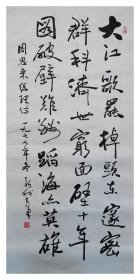 大江歌罷掉頭東邃密
群科濟世窮面壁十年
圖破壁難酬蹈海亦英雄
周恩来總理詩 一九七七年